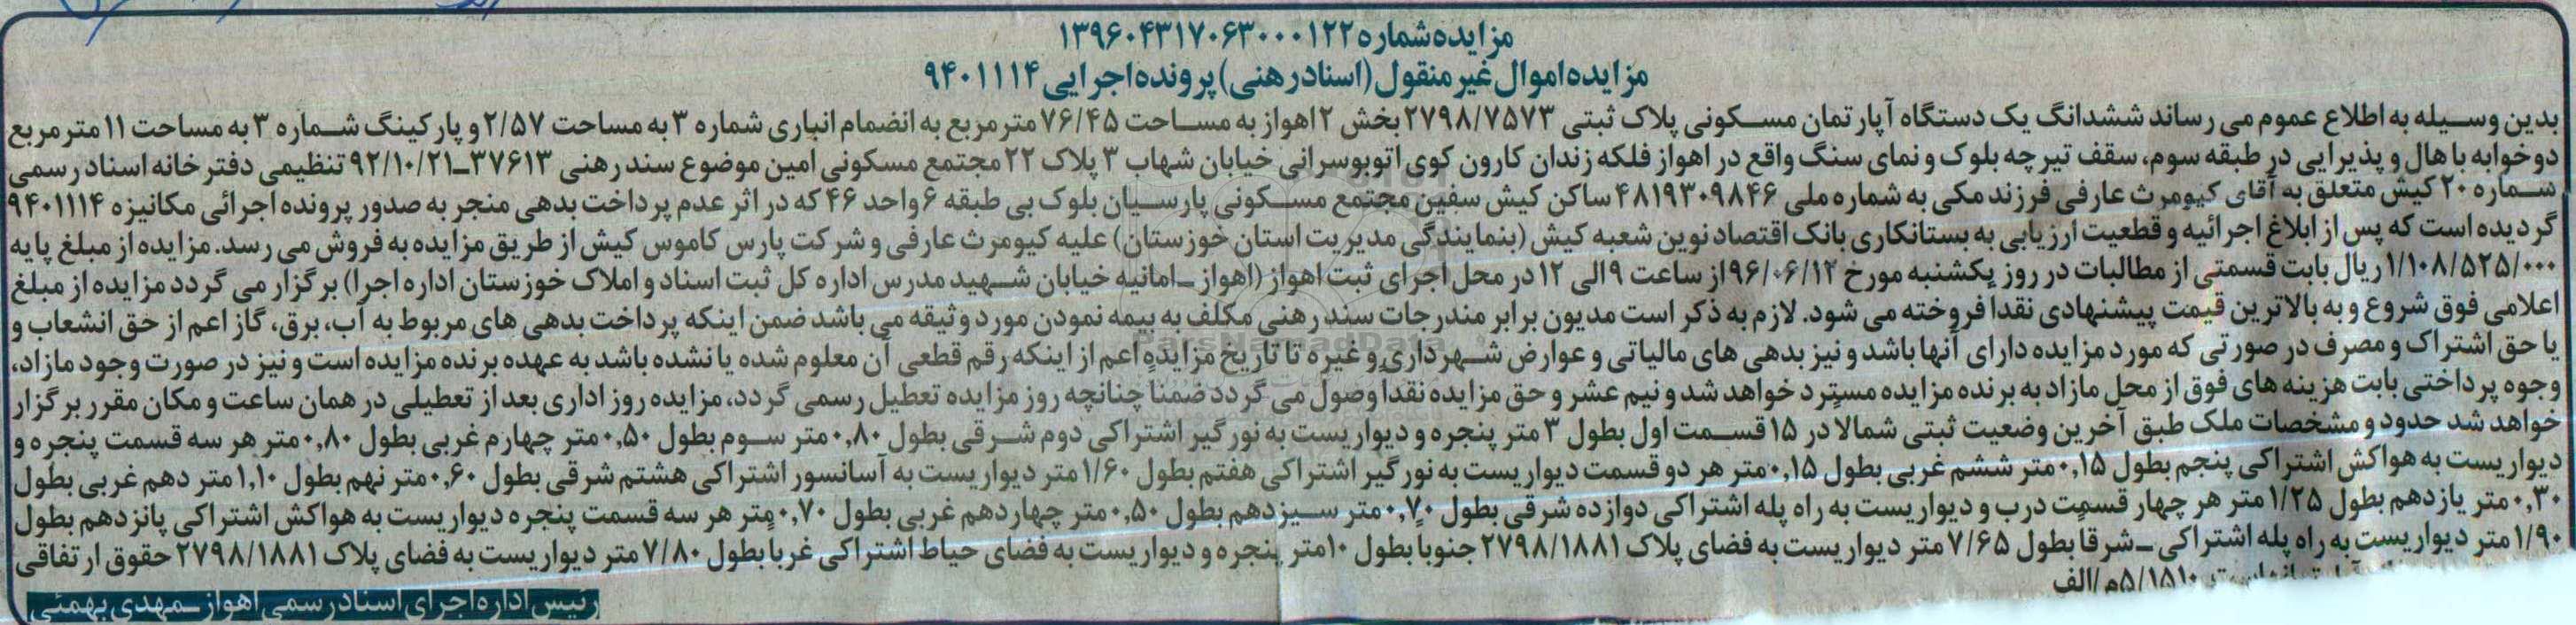 مزایده شماره ۱۳۹۶۰۴۳۱۷۰۶۳۰۰۰۱۲۲
مزایده اموال غیر منقول (اسناد رهنی) پرونده اجرایی ۹۴۰۱۱۱۴
بدین وسیله به اطلاع عموم می رساند ششدانگ یک دستگاه آپارتمان مسکونی پلاک ثبتی ۲۷۹۸/۷۵۷۳ بخش ۲ اهواز به مساحت ۷۶/۴۵ متر مربع به انضمام انباری شماره ۳ به مساحت ۲/۵۷ و پارکینگ شماره ۳ به مساحت ۱۱ متر مربع
دو خوابه با هال و پذیرایی در طبقه سوم، سقف تیرچه بلوک و نمای سنگ واقع در اهواز فلکه زندان کارون کوی اتوبوسرانی خیابان شهاب ۳ پلاک ۲۲ مجتمع مسکونی امین موضوع سند رهنی ۳۷۶۱۳_۹۲/۱۰/۲۱ تنظیمی دفترخانه اسناد رسمی
شماره ۲۰ کیش متعلق به آقای کیومرث عارفی فرزند مکی به شماره ملی ۴۸۱۹۳۰۹۸۴۶ ساکن کیش سفین مجتمع مسکونی پارسیان بلوک بی طبقه ۶ واحد ۴۶ که در اثر عدم پرداخت بدهی منجر به صدور پرونده اجرائی مکانیزه ۹۴۰۱۱۱۴
گردیده است که پس از ابلاغ اجرائیه و قطعیت ارزیابی به بستانکاری بانک اقتصاد نوین شعبه کیش (بنمایندگی مدیریت استان خوزستان) علیه کیومرث عارفی و شرکت پارس کاموس کیش از طریق مزایده به فروش می رسد. مزایده از مبلغ پایه
۱/۱۰۸/۵۲۵/۰۰۰ ریال بابت قسمتی از مطالبات در روز یکشنبه مورخ ۹۶/۰۶/۱۲ از ساعت ۹ الی ۱۲ در محل اجرای ثبت اهواز (اهواز _ امانیه خیابان شهید مدرس اداره کل ثبت اسناد و املاک خوزستان اداره اجرا) برگزار می گردد مزایده از مبلغ
اعلامی فوق شروع و به بالاترین قیمت پیشنهادی نقدا فروخته می شود. لازم به ذکر است مدیون برابر مندرجات سند رهنی مکلف به بیمه نمودن مورد وثیقه می باشد ضمن اینکه پرداخت بدهی های مربوط به آب، برق، گاز اعم از حق انشعاب و
یا حق اشتراک و مصرف در صورتی که مورد مزایده دارای آنها باشد و نیز بدهی های مالیاتی و عوارض شهرداری و غیره تا تاریخ مزایده اعم از اینکه رقم قطعی آن معلوم شده یا نشده باشد به عهده برنده مزایده است و نیز در صورت وجود مازاد،
وجوه پرداختی بابت هزینه های فوق از محل مازاد به برنده مزایده مسترد خواهد شد و نیم عشر و حق مزایده نقداً وصول می گردد ضمناً چنانچه روز مزایده تعطیل رسمی گردد، مزایده روز اداری بعد از تعطیلی در همان ساعت و مکان مقرر برگزار
خواهد شد حدود و مشخصات ملک طبق آخرین وضعیت ثبتی شمالا در ۱۵ قسمت اول بطول ۳ متر پنجره و دیواریست به نورگیر اشتراکی دوم شرقی بطول ۰,۸۰ متر سوم بطول ۰,۵۰ متر چهارم غربی بطول ۰,۸۰ متر هر سه قسمت پنجره و
دیواریست به هواکش اشتراکی پنجم بطول ۰,۱۵ متر ششم غربی بطول ۰,۱۵ متر هر دو قسمت دیواریست به نورگیر اشتراکی هفتم بطول ۱/۶۰ متر دیواریست به آسانسور اشتراکی هشتم شرقی بطول ۰,۶۰ متر نهم بطول ۱,۱۰ متر دهم غربی بطول
۰,۳۰ متر یازدهم بطول ۱/۲۵ متر هر چهار قسمت درب و دیواریست به راه پله اشتراکی دوازده شرقی بطول ۰,۷۰ متر سیزدهم بطول ۰,۵۰ متر چهاردهم غربی بطول ۰,۷۰ متر هر سه قسمت پنجره دیواریست به هواکش اشتراکی پانزدهم بطول
۱/۹۰ متر دیواریست به راه پله اشتراکی _ شرقا بطول ۷/۶۵ متر دیواریست به فضای پلاک ۲۷۹۸/۱۸۸۱ جنوبا بطول ۱۰ متر پنجره و دیواریست به فضای حیاط اشتراکی غربا بطول ۷/۸۰ متر دیواریست به فضای پلاک ۲۷۹۸/۱۸۸۱ حقوق ارتفاقی
۵/۱۵۱۰م/الف
رئیس اداره اجرای اسناد رسمی اهواز _ مهدی بهمئی
ParsNamadData